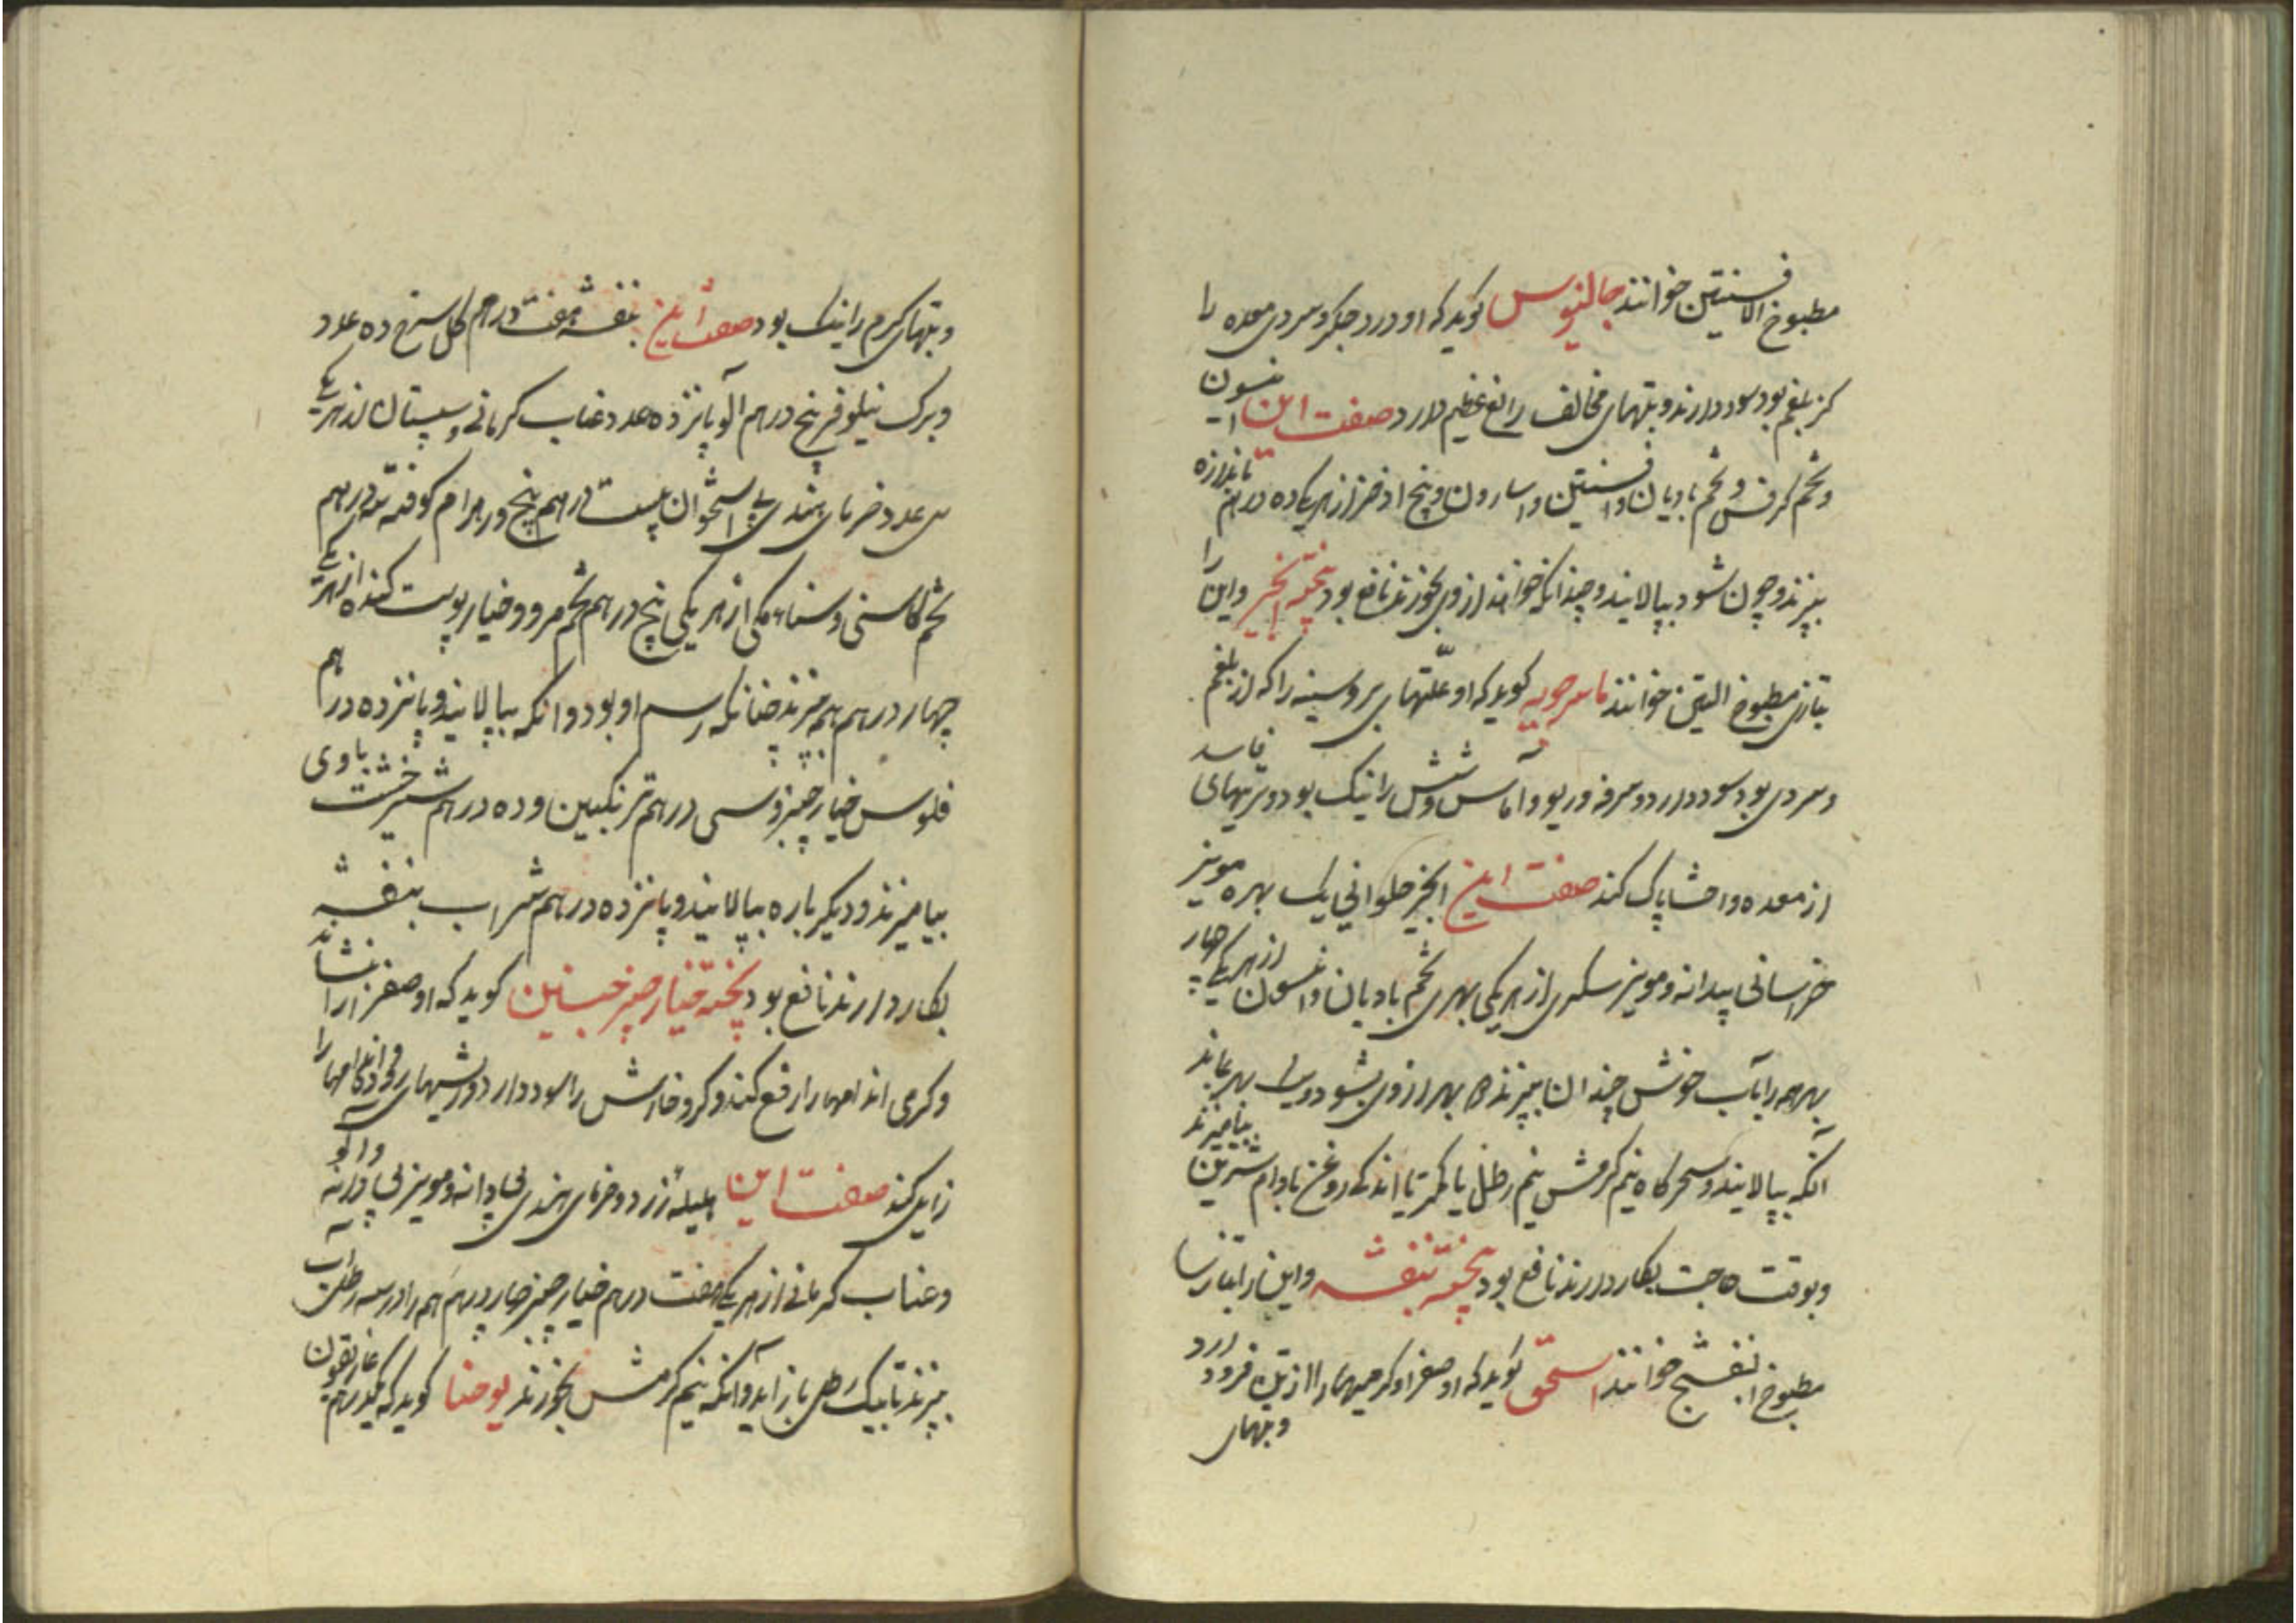 مطبوخ الافسنتین خوانند جالینوس کوید که او درد جکر و سردی معده را
کز بلغم بود سود دارند و تبهای مخالف را نفع عظیم دارد صفت این انیسون
و تخم کرفس و تخم بادیان و افسنتین و اسارون و بیخ اذخر از هر یکی ده درهم تا اندازه
بپزند و چون شود بپالایند و چندانکه خوانند از وی بخورند نافع بود پخته انجیر و این را
بتازی مطبوخ التین خوانند ماسرجویه کوید که او علتهای بر و سینه را که از بلغم
و سردی بود سود دارد و سرفه و ربو و آماس شش را نیک بود و تریهای فاسد
از معده و احشا پاک کند صفت این انجیر حلوانی یک بهره مویز
خراسانی بیدانه و مویز سکری از هر یکی بهری تخم بادیان و انیسون از هر یکی چهار
بهر همه را بآب خوش چندان بپزند که بهر از وی بشود و بهر بماند
آنکه بپالایند و سحرکاه نیم کرمش نیم رطل یا کمتر با اندکی روغن بادام شیرین بیامیزند
و بوقت حاجت بکار دارند نافع بود پخته بنفشه و این را بتازی
مطبوخ البنفسج خوانند اسحق کوید که او صفرا و کرمیها را از تن فرود آرد
و تبهای
و تبهای کرم را نیک بود صفت این بنفشه هفت درهم کل سرخ ده عدد
و برک نیلوفر پنج درهم آلو پانزده عدد عناب کرمانی و سپستان از هر یکی
سی عدد خرمای هندی بی استخوان بیست درهم پنج درهم کوفته سه درهم
تخم کاسنی و سناء مکی از هر یکی پنج درهم تخم مرو و خیار پوست کنده از هر یکی
چهار درهم همه بپزند چنانکه رسم او بود و آنکه بپالایند و پانزده درهم
فلوس خیار چنبر و سی درهم ترنکبین و ده درهم شیرخشت باوی
بیامیزند و دیکر باره بپالایند و پانزده درهم شراب بنفشه
بکار دارند نافع بود پخته خیار چنبر حنین کوید که او صفرا را بنشاند
و کرمی اندامها را رفع کند و کر و خارش را سود دارد و ریشهای اندامها را
زایل کند صفت این هلیله زرد و خرمای هندی بی دانه و مویز بی دانه و آلو
و عناب کرمانی از هر یکی هفت درهم خیار چنبر چهار درهم همه را در سه رطل آب
بپزند تا بیک رطل باز آید و آنکه نیم کرمش بخورند یوحنا کوید که یکدرهم غاریقون